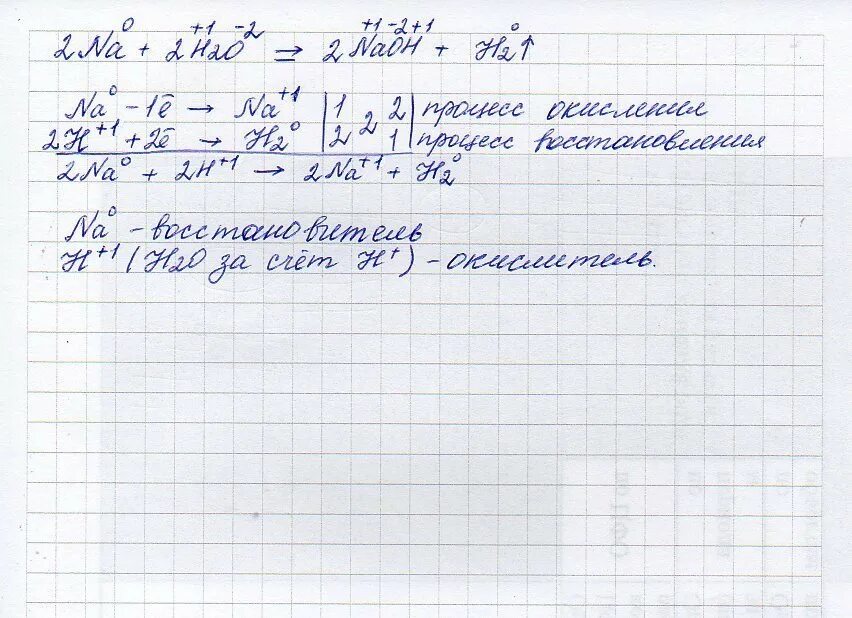 2Na⁰ + 2H⁺¹2O⁻² = 2Na⁺¹O⁻²H⁺¹ + H2⁰↑
Na⁰ - 1ē → Na⁺¹ | 1 2 2 | процесс окисления
2H⁺¹ + 2ē → H2⁰ | 2 1 | процесс восстановления
2Na⁰ + 2H⁺¹ → 2Na⁺¹ + H2⁰
Na⁰ - восстановитель
H⁺¹ (H2O за счёт H⁺) - окислитель.